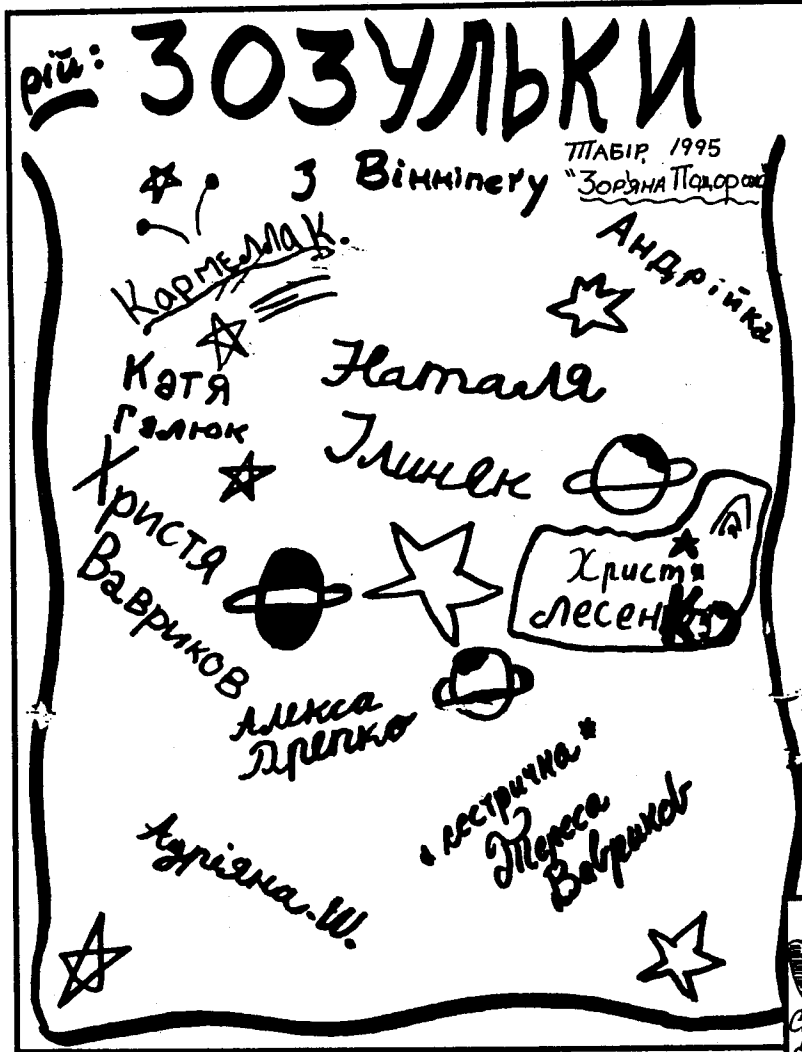 рій: ЗОЗУЛЬКИ
з Вінніпеґу
ТАБІР, 1995
"ЗОР'ЯНА Подорож"
Кармелла К.
Андрійка
Катя
Галюк
Наталя
Ілиняк
Христя
Вавриков
Христя
Лесенко
Алекса
Дрепко
Адріяна. Ш.
сестричка
Тереса
Вавриков